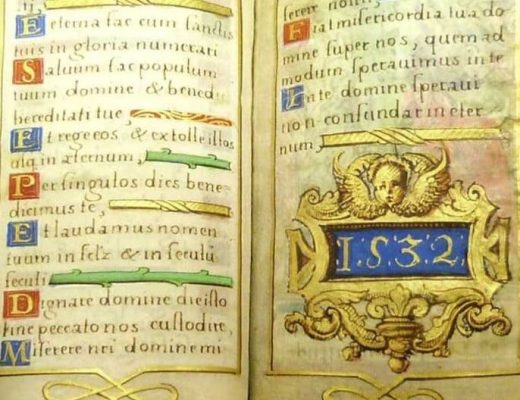 ti,
Eterna fac cum sanctis
tuis in gloria numerari
Saluum fac populum
tuum domine & bened
hereditati tue,
Et rege eos & extolle illos
usq in æternum,
Per singulos dies bene=
dicimus te,
Et laudamus nomen
tuum in seculũ
seculi
Dignare domine die isto
sine peccato nos custodire,
Miserere nri domine mi
serere nostri
Fiat misericordia tua do
mine super nos, quemad
modum sperauimus in te
In te domine speraui
non confundar in eter
num,
1.5.3.2.